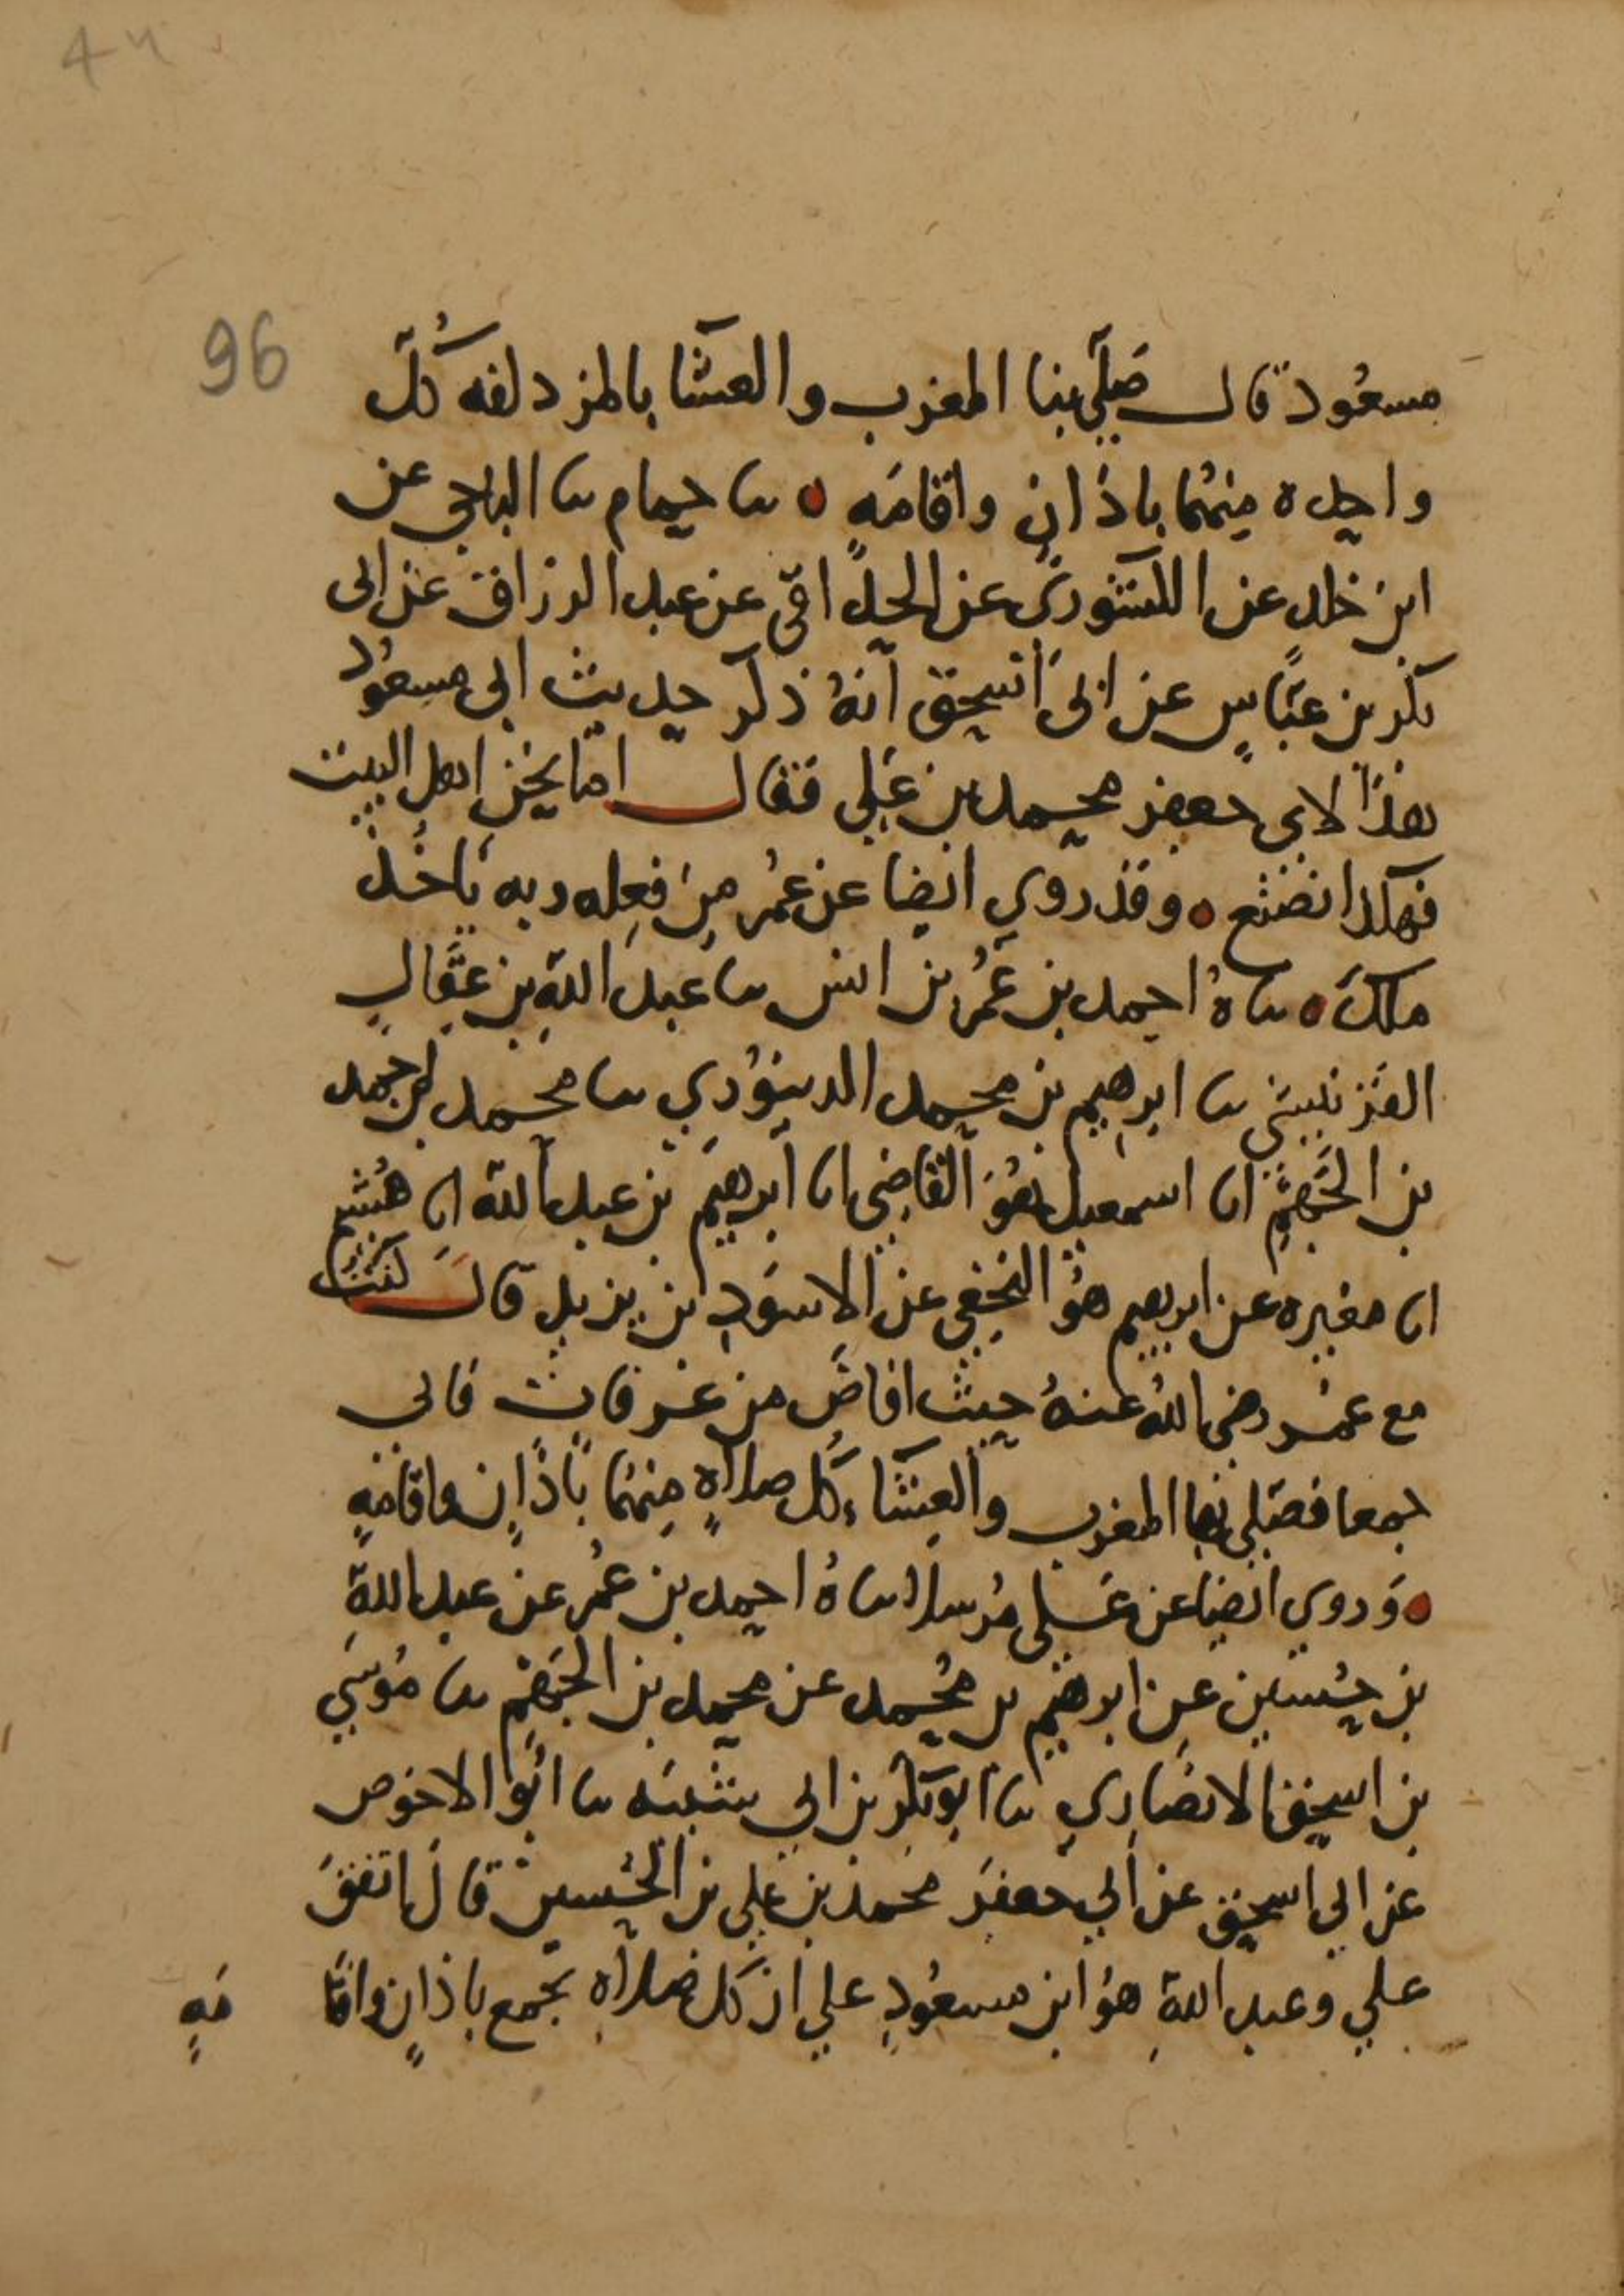 44
96
مسعُود قال صَلَّى بنا المغرب والعشا بالمزدلفه كُلّ
واحده مِنهُما باذانٍ واقامَهٍ ٥ ثنا حمام ثنا الباجي عن
ابن خالد عن الكشوري عن الحذاقي عن عبد الرزاق عن ابي
بكر بن عيّاشٍ عن ابي اسحق انهُ ذكر حديث ابي مسعُود
هذا لابي جعفر محمد بن علي فقال اما نحن اهل البيت
فهكذا نصنع ٥ وقد روي ايضا عن عُمر مِن فِعله وبه ياخُذ
ملك ٥ ثناهُ احمد بن عُمر بن انس ثنا عبد الله بن عقالٍ
القزنيني ثنا ابرهيم بن محمد الدينوري ثنا محمد بن احمد
بن الجَهم انا اسمعيل هُوَ القاضِي انا ابرهيم بن عبد الله انا هُشيم
انا مغيره عن ابرهيم هُو النخعي عن الاسوَدِ بن يزيد قال كُنت
مع عمر رضي اللهُ عنهُ حيث افاضَ من عرفات فاتي
جمعا فصَلى بها المغرب والعِشَاء كل صلاهٍ مِنهُما باذانٍ واقامهٍ
٥ وَروي ايضا عن عَلي مُرسلا ثناهُ احمد بن عُمر عن عبد الله
بن حُسين عن ابرهيم بن مُحمد عن محمد بن الجَهم ثنا مُوسَي
بن اسحق الانصَاري ثنا ابو بكر بن ابي شَيبَه ثنا ابُو الاحوص
عن ابي اسحق عن ابي جعفر محمد بن علي بن الحُسين قال اتفق
علي وعبد الله هُو ابن مسعُودٍ علي ان كل صلاهٍ بجمع باذانٍ واقا
مَهٍ